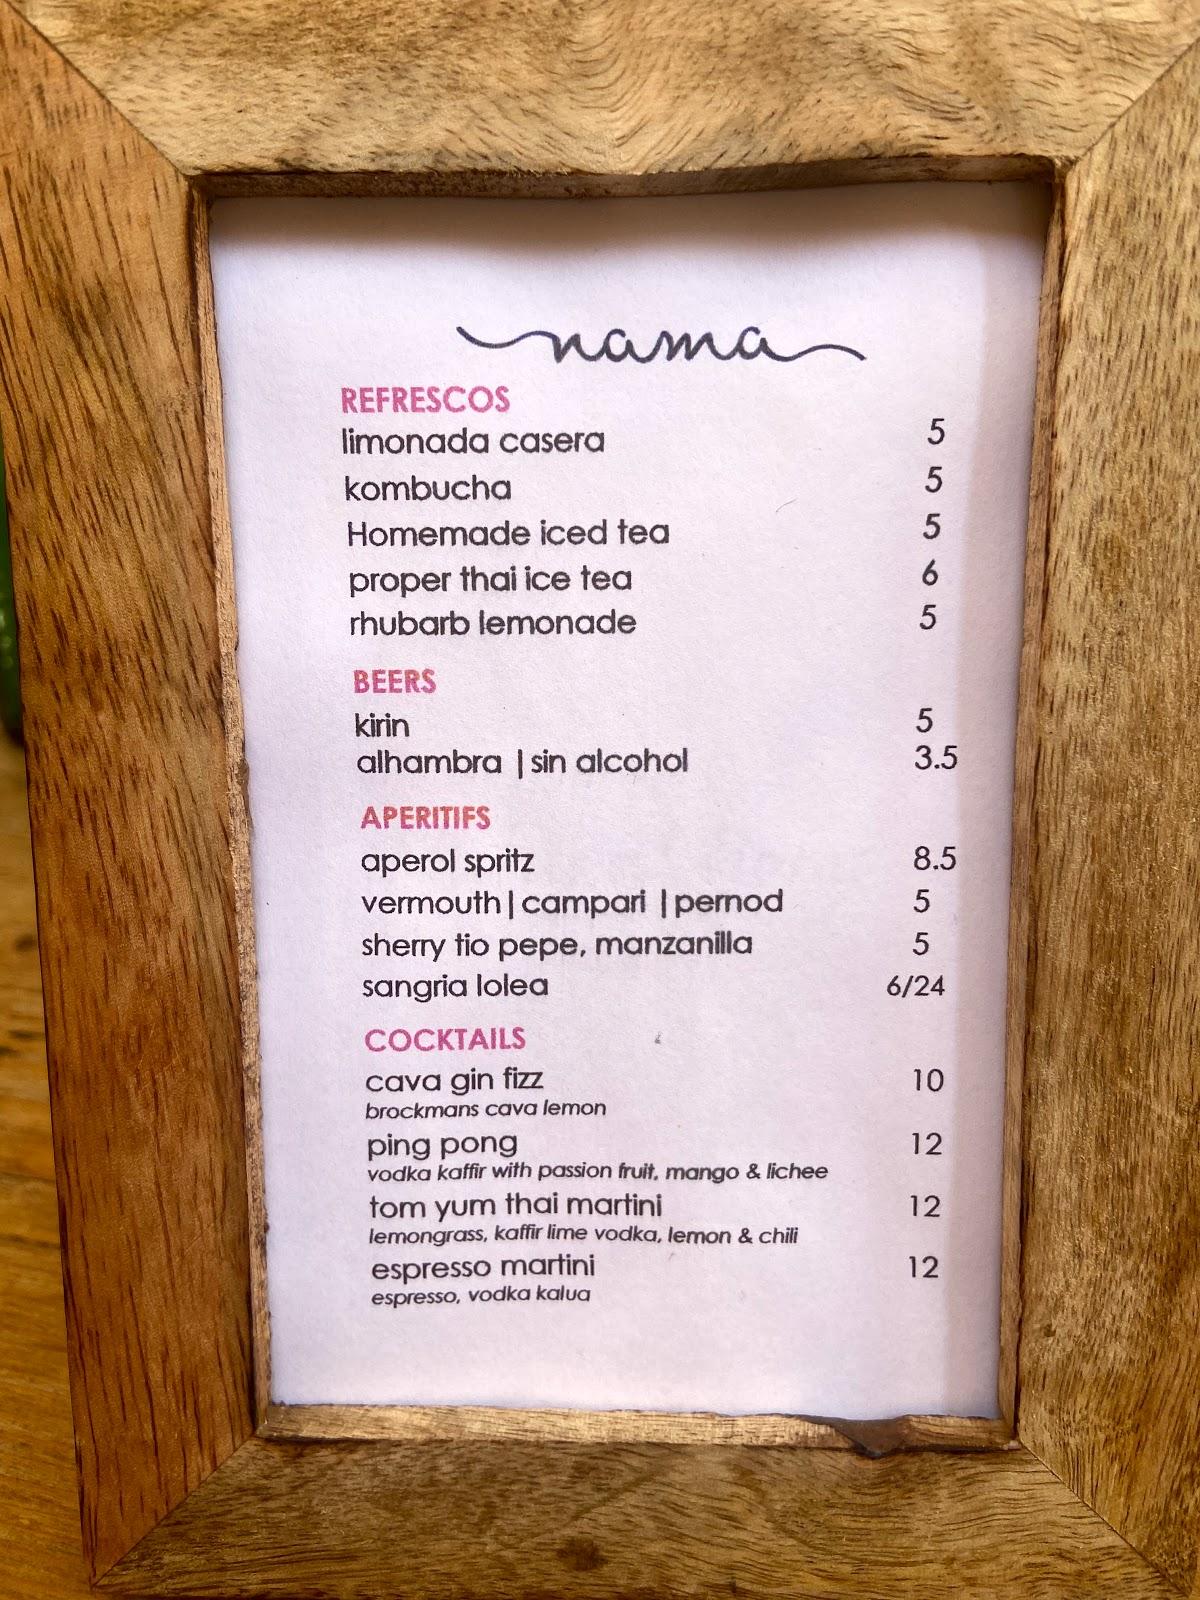 nama
REFRESCOS
limonada casera 5
kombucha 5
Homemade iced tea 5
proper thai ice tea 6
rhubarb lemonade 5
BEERS
kirin 5
alhambra | sin alcohol 3.5
APERITIFS
aperol spritz 8.5
vermouth | campari | pernod 5
sherry tio pepe, manzanilla 5
sangria lolea 6/24
COCKTAILS
cava gin fizz 10
brockmans cava lemon
ping pong 12
vodka kaffir with passion fruit, mango & lichee
tom yum thai martini 12
lemongrass, kaffir lime vodka, lemon & chili
espresso martini 12
espresso, vodka kalua